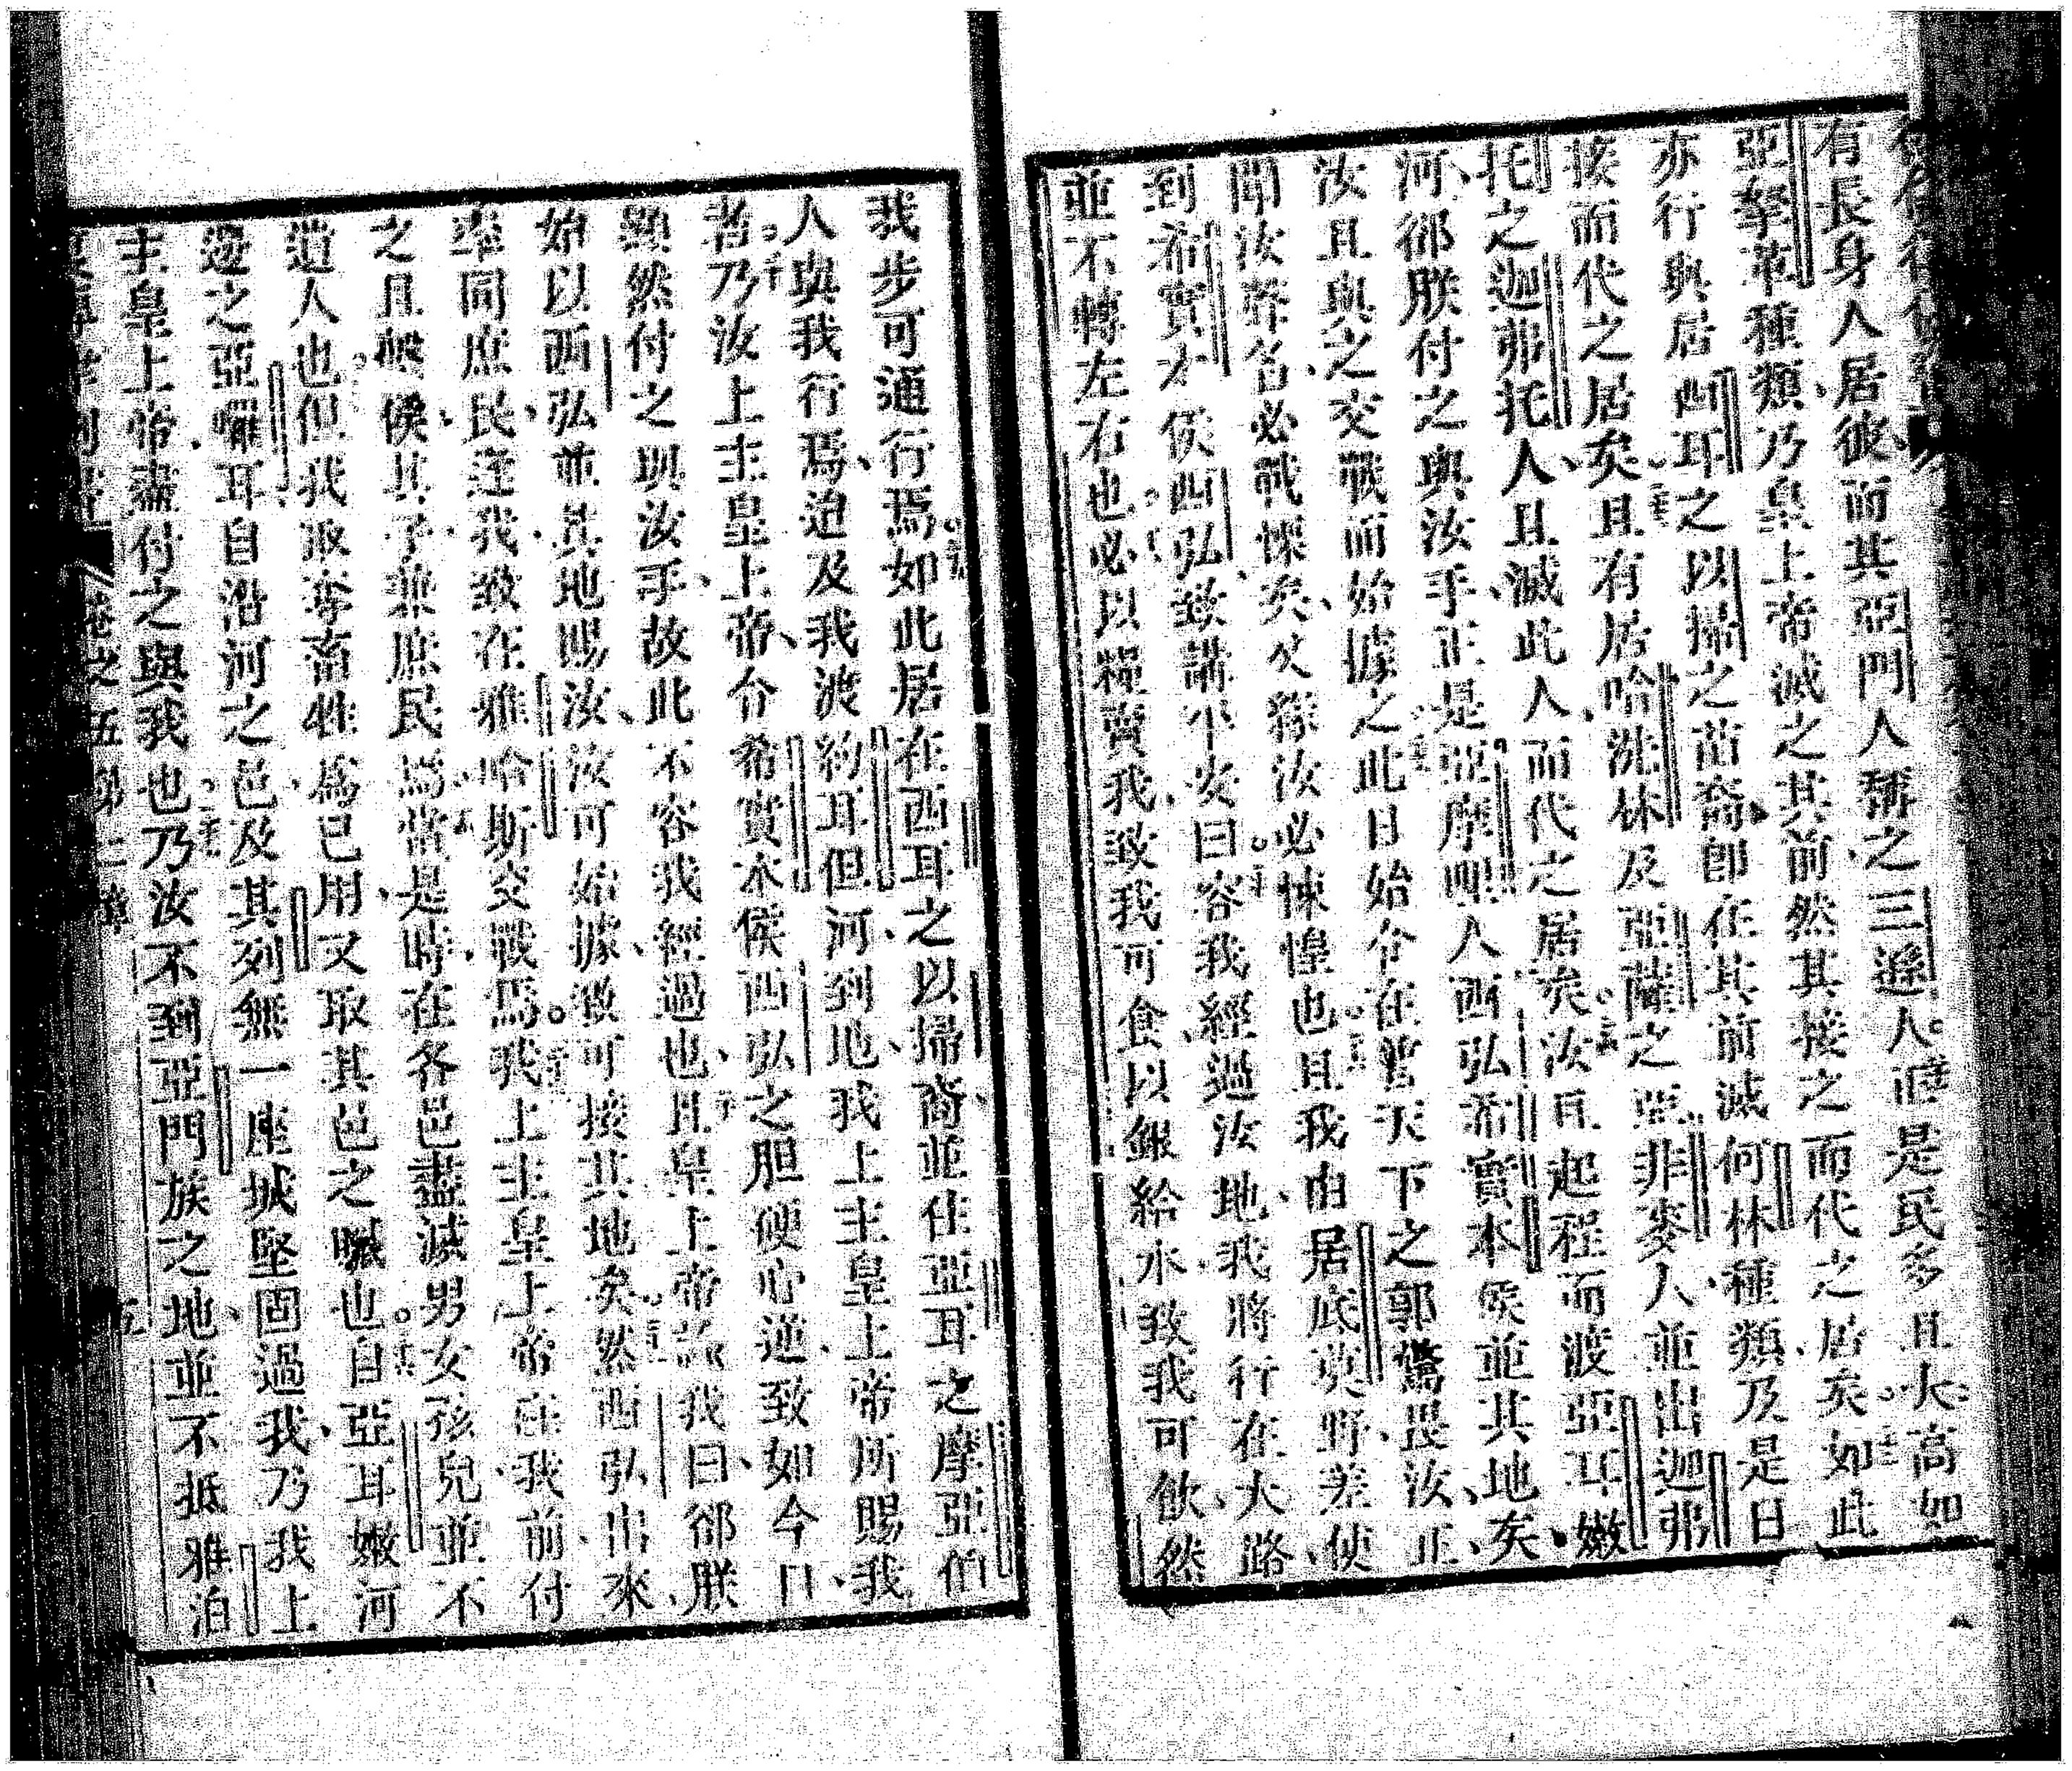 有長身人居彼、而其亞門人稱之三遜人。二十一是民多且大高如
亞拏革種類、乃皇上帝滅之其前、然其接之而代之居矣。二十二如此
亦行與居西耳之以掃之苗裔、即在其前滅何林種類、及是日
接而代之居矣。二十三且有居哈洗林及亞薩之亞非麥人、並出迦弗
托之迦弗托人、且滅此人、而代之居矣。二十四汝且起程而渡亞耳嫩
河、卻朕付之與汝手、正是亞摩哩人西弘、希實本侯、並其地矣、
汝且與之交戰而始據之。二十五此日始令在普天下之郭驚畏汝、正
聞汝聲名必戰慄矣、又緣汝必悚惶也。二十六且我由居底莫野、差使
到希實本侯西弘致講平安曰、二十七容我經過汝地、我將行在大路、
並不轉左右也。二十八必以糧賣我、致我可食、以銀給水、致我可飲、然
我步可通行焉。二十九如此居在西耳之以掃裔、並住亞耳之摩亞伯
人與我行焉、迨及我渡約耳但河、到地、我上主皇上帝所賜我
者。三十乃汝上主皇上帝、令希實本侯西弘之胆硬心逆、致如今日、
顯然付之與汝手、故此不容我經過也、三十一且皇上帝謂我曰、卻朕
始以西弘並其地賜汝、汝可始據、致可接其地矣。三十二然西弘出來、
率同庶民逢我、致在雅哈斯交戰焉。三十三我上主皇上帝在我前付
之、且擊侯其子兼庶民焉。三十四當是時、在各邑盡滅男女孩兒、並不
遺人也。三十五但我取奪畜牲爲己用、又取其邑之贓也。三十六自亞耳嫩河
邊之亞囉耳、自沿河之邑、及其列、無一座城堅固過我、乃我上
主皇上帝盡付之與我也。三十七乃汝不到亞門族之地、並不抵雅泊
卷之五第二章 五